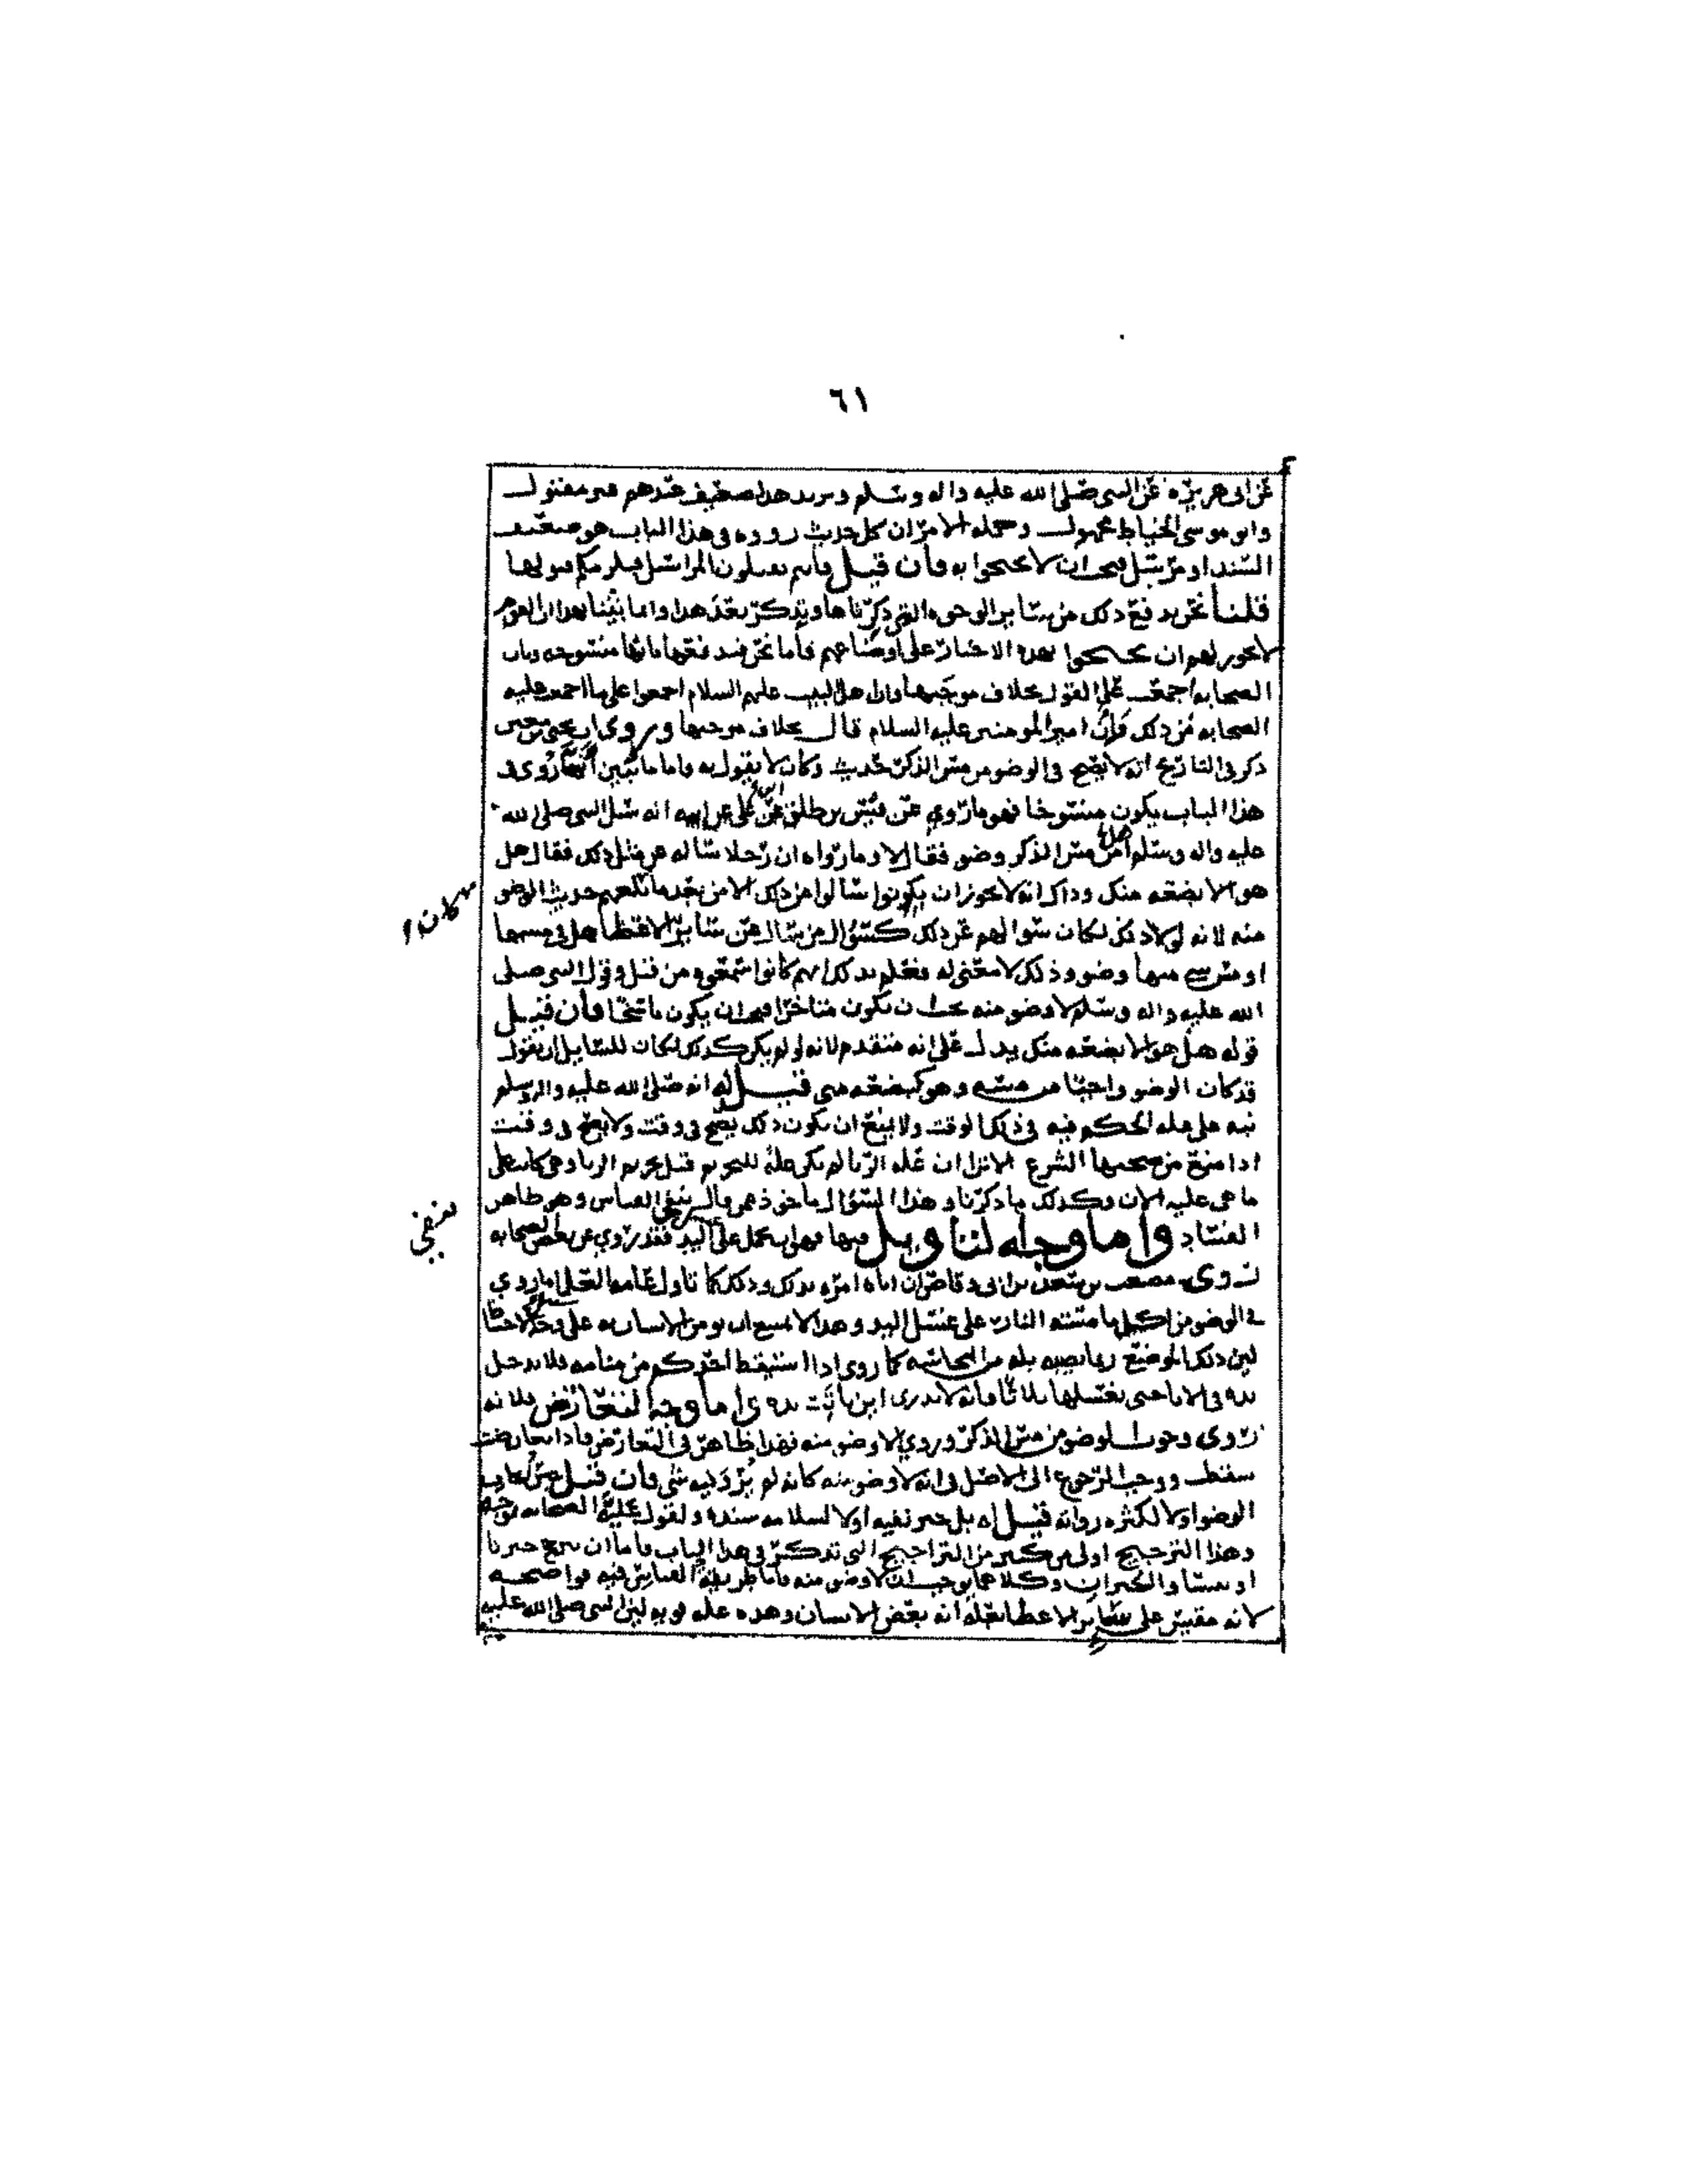 ٦١
عن ابى هريره عن النبى صلى الله عليه واله وسلم ويزيد هذا ضعيف عندهم غير مقبول
وابو موسى الخياط مجهول وجمله الامر ان كل حديث رووه فى هذا الباب هو ضعيف
السند او مرسل فيجب ان لا يحتجوا به فان قيل فانتم تقبلون المراسيل فيلزمكم قبولها
قلنا نحن ندفع ذلك من سائر الوجوه التى ذكرناها وتذكر بعد هذا وانما بينا بهذا ان القوم
لا يجوز لهم ان يحتجوا بهذه الاخبار على اوضاعهم فأما نحن فندفعها بانها منسوخه وبان
الصحابه اجمعت على القول بخلاف موجبها وان اهل البيت عليهم السلام اجمعوا على ما اجمعت عليه
الصحابه من ذلك فان امير المومنين عليه السلام قال بخلاف موجبها وروى ان يحيى بن معين
ذكر فى التاريخ انه لا يصح فى الوضو من مس الذكر حديث وكان لا يقول به واما ما يبين ان ما روى فى
هذا الباب يكون منسوخا فهو ما روي عن قيس بن طلق بن على عن ابيه انه سئل النبى صلى الله
عليه واله وسلم هل من مس الذكر وضو فقال لا وما رواه ان رجلا ساله عن مثل ذلك فقال هل
هو الا بضعه منك وذاك انه لا يجوز ان يكونوا سالوا عن ذلك الا من بعد ما بلغهم حديث الوضو
منه لانه لولا ذلك لكان سوالهم عن ذلك كسؤال من سال عن سائر الاعضا هل فى مسها
او مس شى منها وضو وذلك لا معنى له فعلم بذلك انهم كانوا سمعوه من قبل وقول النبى صلى
الله عليه واله وسلم لا وضو منه يجب ان يكون متاخرا فيجب ان يكون ناسخا فان قيل
قوله هل هو الا بضعه منك يدل على انه متقدم لانه لو لم يكن كذلك لكان للسايل ان يقول
قد كان الوضو واجبا من مسه وهو كبضعه منى قيل له انه صلى الله عليه واله وسلم
نبه على عله الحكم فيه فى ذلك الوقت ولا يمتنع ان يكون ذلك يصح فى وقت ولا يصح فى وقت
اذا منع من صحتها الشرع الا ترا ان عله الربا لم تكن علة للتحريم قبل تحريم الربا وهى كانت على
ما هى عليه الان وكذلك ما ذكرنا وهذا السؤال ماخوذ ممن قال بنفى القياس وهو ظاهر
الفساد واما وجه التاويل فيها فهو انه يحمل على اليد فقد روي عن بعض الصحابه
روى مصعب بن سعد بن ابى وقاص ان اباه امره بذلك وذلك كما تاول عامه العلما ما روي
فى الوضو من اكل ما مسته النار على غسل اليد وهذا لا يمتنع ان يومر الانسان به على وجه الاحتياط
لان ذلك الموضع ربما يصيبه بله من النجاسه كما روى اذا استيقظ احدكم من منامه فلا يدخل
يده فى الانا حتى يغسلها ثلاثا فانه لا يدرى اين باتت يده واما وجه التعارض فلانه
روى وجوب الوضو من مس الذكر وروي الا وضو منه فهذا ظاهر فى التعارض فاذا تعارضت
سقطت ووجب الرجوع الى الاصل فى انه لا وضو منه كانه لم يرد فيه شى فان قيل خبر ايجاب
الوضو اولا لكثره رواته قيل له بل خبر نفيه اولا لسلامه سنده ولقول علية الصحابه بموجبه
وهذا الترجيح اولى من كثير من التراجيح التى تذكر فى هذا الباب فاما ان يرجح خبرنا
او يستا والخبران وكلاهما يوجب ان لا وضو منه فاما طريقه القياس فيه فواضحه
لانه مقيس على سائر الاعضا بعلة انه بعض الانسان وهذه عله قويه لان النبى صلى الله عليه